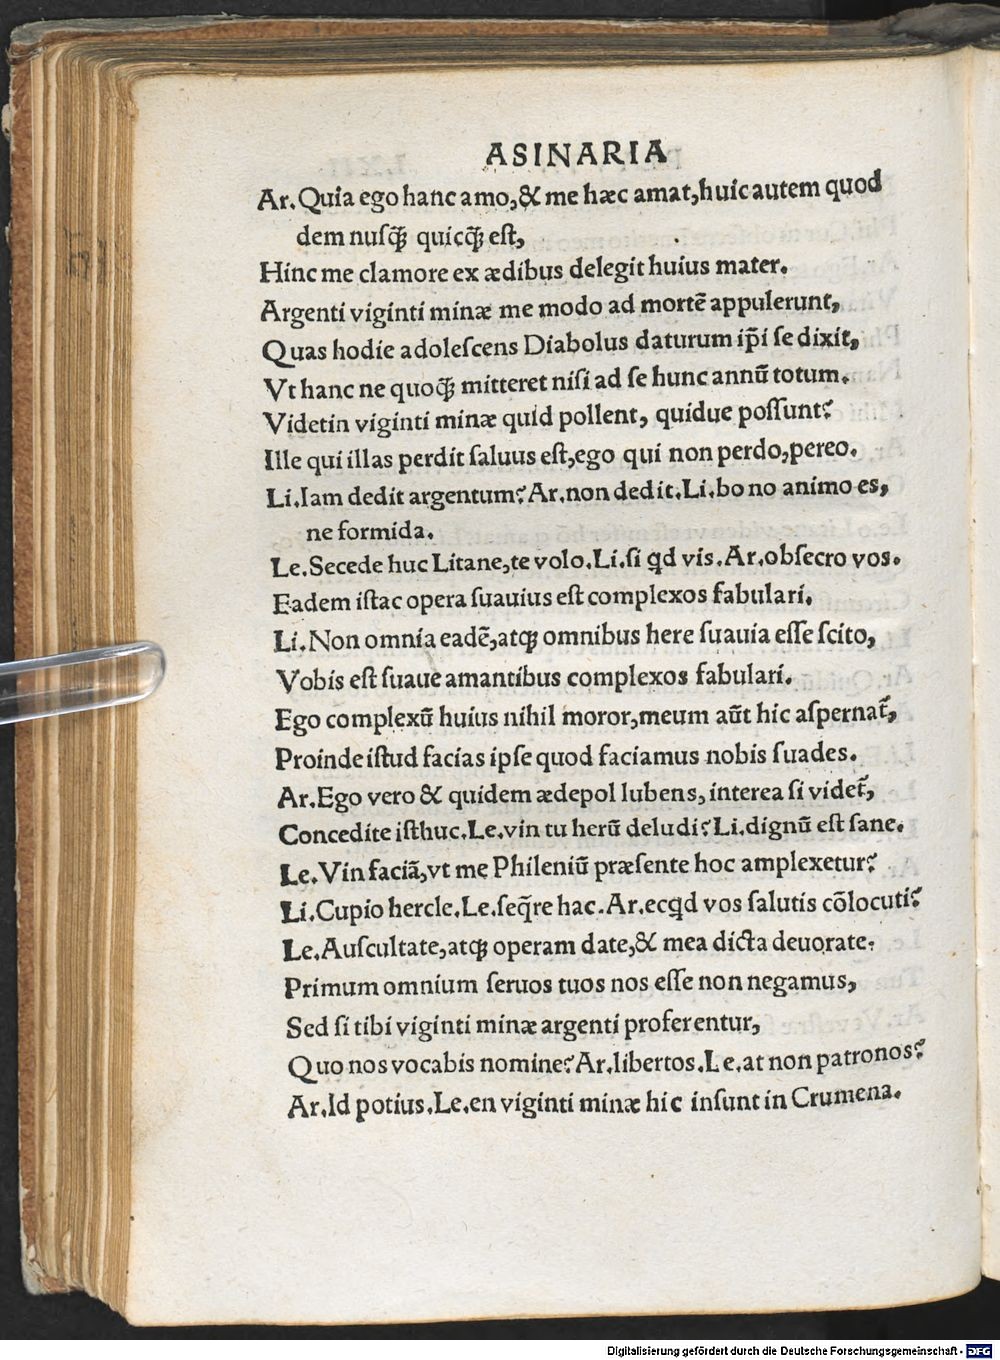 ASINARIA
Ar.Quia ego hanc amo,& me hæc amat,huic autem quod
dem nuſꝙ̃ quicꝙ̃ eſt,
Hinc me clamore ex ædibus delegit huius mater.
Argenti viginti minæ me modo ad mortẽ appulerunt,
Quas hodie adoleſcens Diabolus daturum ip̃i ſe dixit,
Vt hanc ne quoꝙ̃ mitteret niſi ad ſe hunc annũ totum.
Videtin viginti minæ quid pollent, quidue poſſunt?
Ille qui illas perdit ſaluus eſt,ego qui non perdo,pereo.
Li.Iam dedit argentum? Ar.non dedit.Li.bono animo es,
ne formida.
Le.Secede huc Litane,te volo.Li.ſi qd vis.Ar.obſecro vos.
Eadem iſtac opera ſuauius eſt complexos fabulari.
Li.Non omnia eadẽ,atqꝫ omnibus here ſuauia eſſe ſcito,
Vobis eſt ſuaue amantibus complexos fabulari.
Ego complexũ huius nihil moror,meum aũt hic aſpernat᷑,
Proinde iſtud facias ipſe quod faciamus nobis ſuades.
Ar.Ego vero & quidem ædepol lubens, interea ſi videt᷑,
Concedite iſthuc.Le.vin tu herũ deludi? Li.dignũ eſt ſane.
Le.Vin faciã,vt me Phileniũ præſente hoc amplexetur?
Li.Cupio hercle.Le.ſeq̃re hac.Ar.ecqd vos ſalutis cõlocuti?
Le.Auſcultate,atqꝫ operam date,& mea dicta deuorate.
Primum omnium ſeruos tuos nos eſſe non negamus,
Sed ſi tibi viginti minæ argenti proferentur,
Quo nos vocabis nomine? Ar.libertos.Le.at non patronos?
Ar.Id potius.Le.en viginti minæ hic inſunt in Crumena.
Digitalisierung gefördert durch die Deutsche Forschungsgemeinschaft - DFG